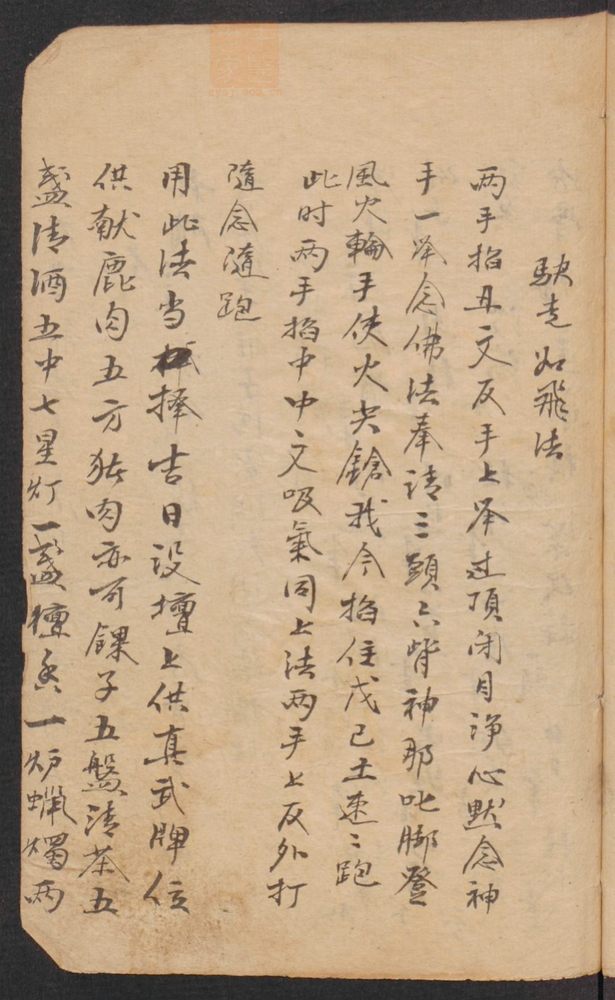 駃走如飛法
两手掐丑文反手上举过顶闭目净心默念神
手一举念佛法奉请三頭六臂神那叱脚登
風火輪手使火尖鎗我今掐住戊己土速〻跑
此时两手掐中中文吸氣同上法两手上反外打
隨念隨跑
用此法当择吉日设壇上供真武牌位
供献鹿肉五方猪肉亦可馃子五盤清茶五
盏清酒五中七星灯一盏檀香一炉蠟燭两